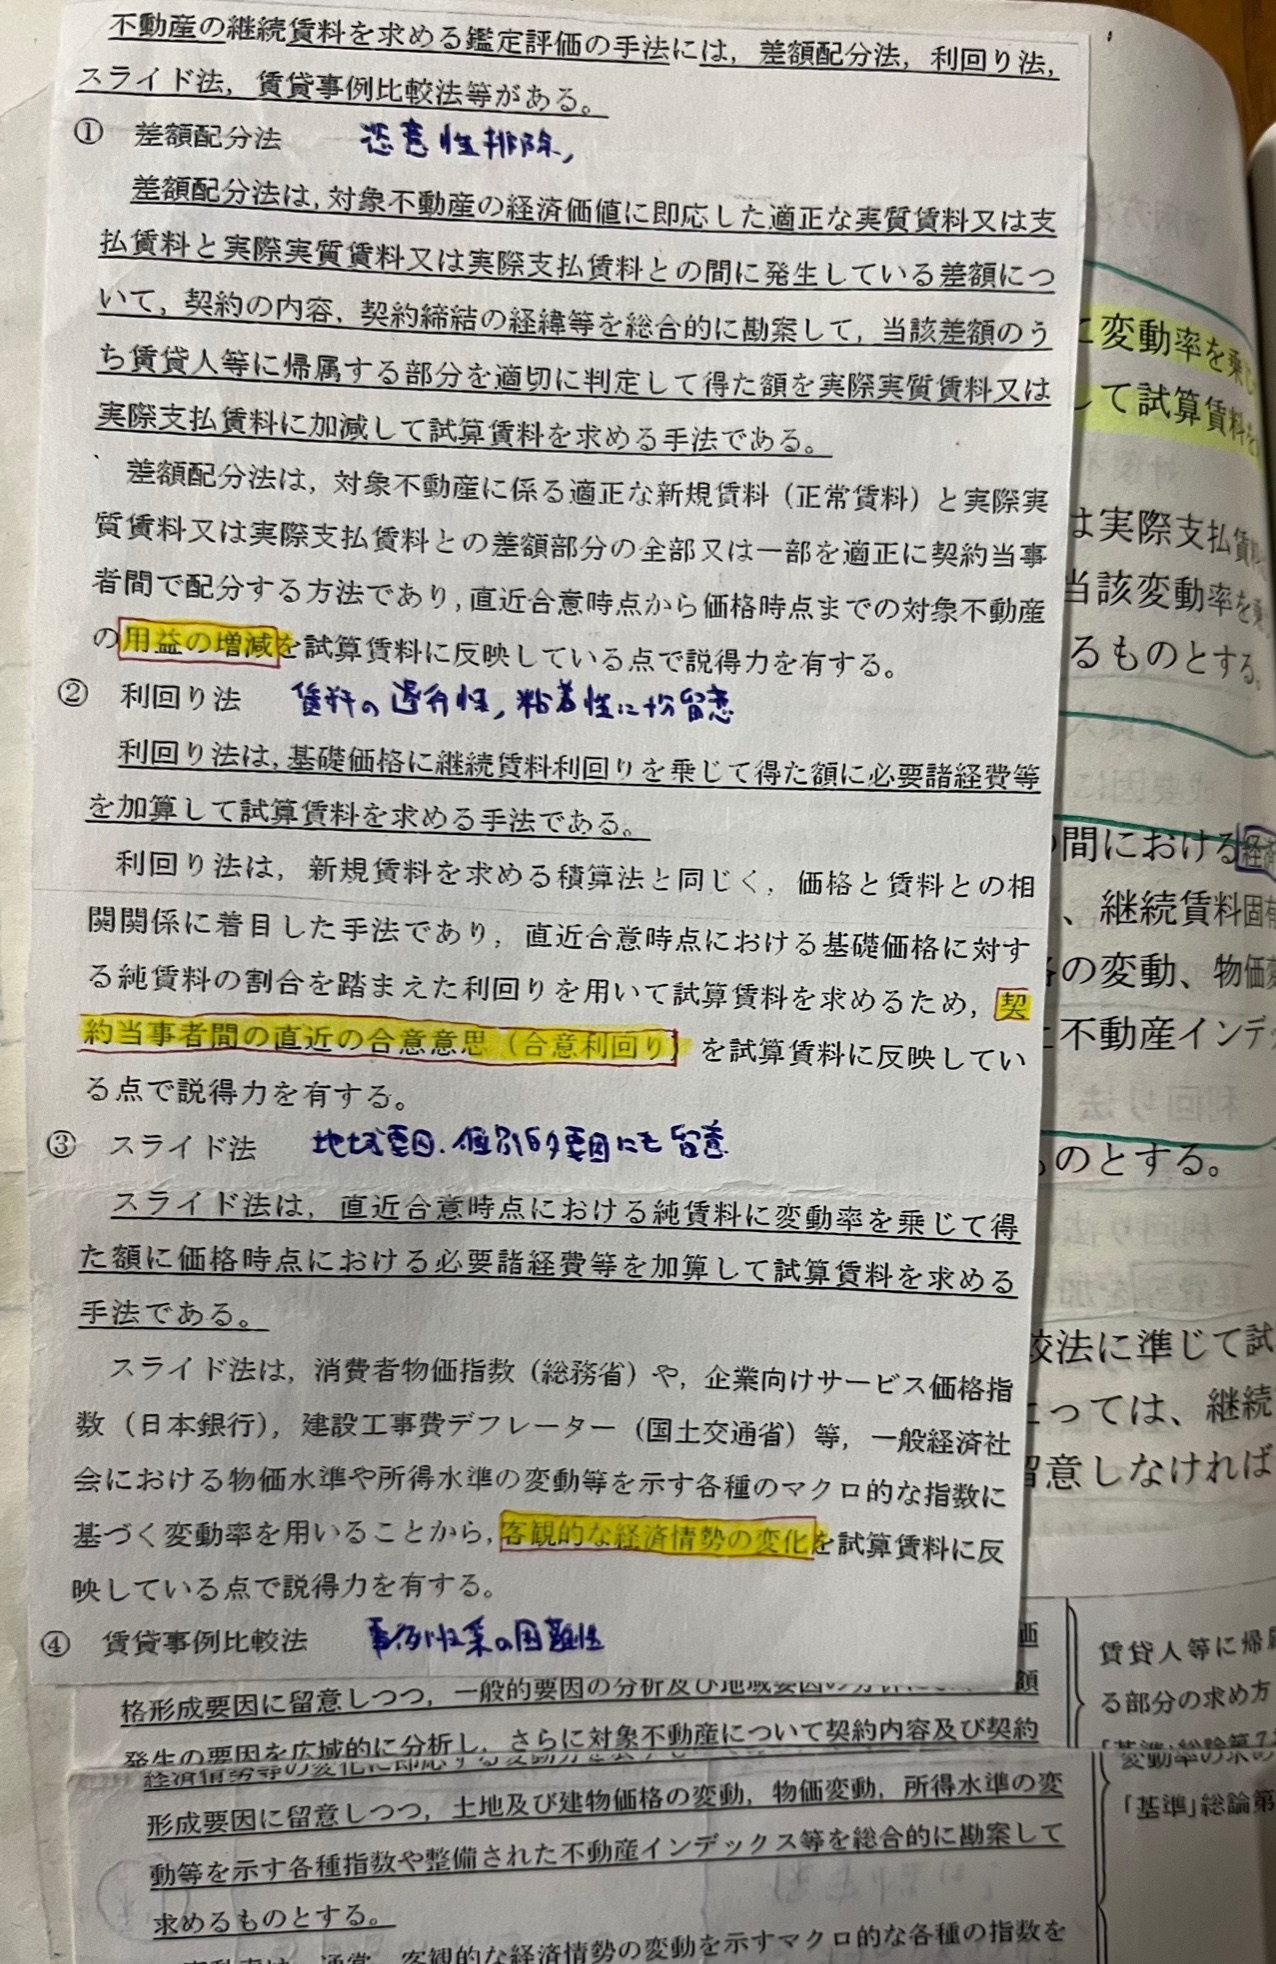 不動産の継続賃料を求める鑑定評価の手法には，差額配分法，利回り法，
スライド法，賃貸事例比較法等がある。
① 差額配分法 恣意性排除，
差額配分法は，対象不動産の経済価値に即応した適正な実質賃料又は支
払賃料と実際実質賃料又は実際支払賃料との間に発生している差額につ
いて，契約の内容，契約締結の経緯等を総合的に勘案して，当該差額のう
ち賃貸人等に帰属する部分を適切に判定して得た額を実際実質賃料又は
実際支払賃料に加減して試算賃料を求める手法である。
差額配分法は，対象不動産に係る適正な新規賃料（正常賃料）と実際実
質賃料又は実際支払賃料との差額部分の全部又は一部を適正に契約当事
者間で配分する方法であり，直近合意時点から価格時点までの対象不動産
の用益の増減を試算賃料に反映している点で説得力を有する。
② 利回り法 賃料の遅行性，粘着性に十分留意
利回り法は，基礎価格に継続賃料利回りを乗じて得た額に必要諸経費等
を加算して試算賃料を求める手法である。
利回り法は，新規賃料を求める積算法と同じく，価格と賃料との相
関関係に着目した手法であり，直近合意時点における基礎価格に対す
る純賃料の割合を踏まえた利回りを用いて試算賃料を求めるため，契
約当事者間の直近の合意意思（合意利回り）を試算賃料に反映してい
る点で説得力を有する。
③ スライド法 地域要因．個別的要因にも留意
スライド法は，直近合意時点における純賃料に変動率を乗じて得
た額に価格時点における必要諸経費等を加算して試算賃料を求める
手法である。
スライド法は，消費者物価指数（総務省）や，企業向けサービス価格指
数（日本銀行），建設工事費デフレーター（国土交通省）等，一般経済社
会における物価水準や所得水準の変動等を示す各種のマクロ的な指数に
基づく変動率を用いることから，客観的な経済情勢の変化を試算賃料に反
映している点で説得力を有する。
④ 賃貸事例比較法 事例収集の困難性
格形成要因に留意しつつ，一般的要因の分析及び地域要因の分析に
発生の要因を広域的に分析し，さらに対象不動産について契約内容及び契約
経済情勢等の変化に即応する変動分を
形成要因に留意しつつ，土地及び建物価格の変動，物価変動，所得水準の変
動等を示す各種指数や整備された不動産インデックス等を総合的に勘案して
求めるものとする。
変動率は，通常，客観的な経済情勢の変動を示すマクロ的な各種の指数を
に変動率を乗
して試算賃料を
は実際支払賃
当該変動率を
るものとする。
間における
、継続賃料固有
の変動、物価
不動産インデ
ものとする。
較法に準じて試
っては、継続
留意しなければ
価
額
賃貸人等に帰属
る部分の求め方
「基準」総論第7
変動率の求め
「基準」総論第